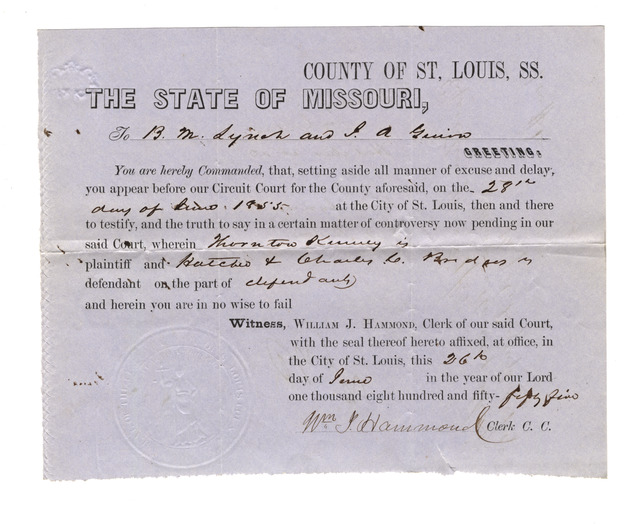 COUNTY OF ST, LOUIS, SS.
THE STATE OF MISSOURI,
To B. M. Lynch and J. A
GREETING:
You are hereby Commanded, that, setting aside all manner of excuse and delay,
you appear before our Circuit Court for the County aforesaid, on the 28th
day of June 1855 at the City of St. Louis, then and there
to testify, and the truth to say in a certain matter of controversy now pending in our
said Court, wherein Thornton Kinney is
plaintiff and Hatcher & Charles C. Bridges is
defendant on the part of defendants
and herein you are in no wise to fail
Witness, WILLIAM J. HAMMOND, Clerk of our said Court,
with the seal thereof hereto affixed, at office, in
the City of St. Louis, this 26th
day of June in the year of our Lord
one thousand eight hundred and fifty-fifty five
Wm J. Hammond Clerk C. C.